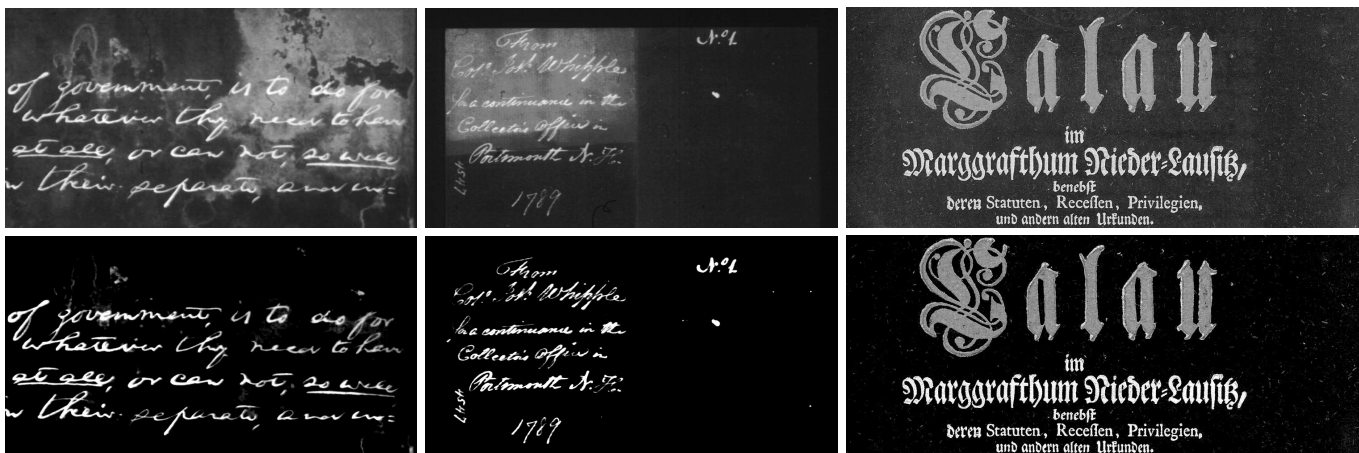 of government, is to do for
whatever they need to have
at all, or can not, so well
their separate, and in=
From
Jos. Whipple
for a continuance in the
Collectors Office in
Portsmouth N. H.
1789
No. 1
Calau
im
Marggrafthum Nieder-Lausitz,
benebst
deren Statuten, Recessen, Privilegien,
und andern alten Urkunden.
of government, is to do for
whatever they need to have
at all, or can not, so well
their separate, and in=
From
Jos. Whipple
for a continuance in the
Collectors Office in
Portsmouth N. H.
1789
No. 1
Calau
im
Marggrafthum Nieder-Lausitz,
benebst
deren Statuten, Recessen, Privilegien,
und andern alten Urkunden.